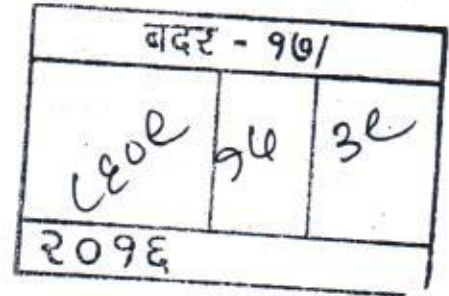 बदर - १७/
८६०९ १५ ३९
२०१६